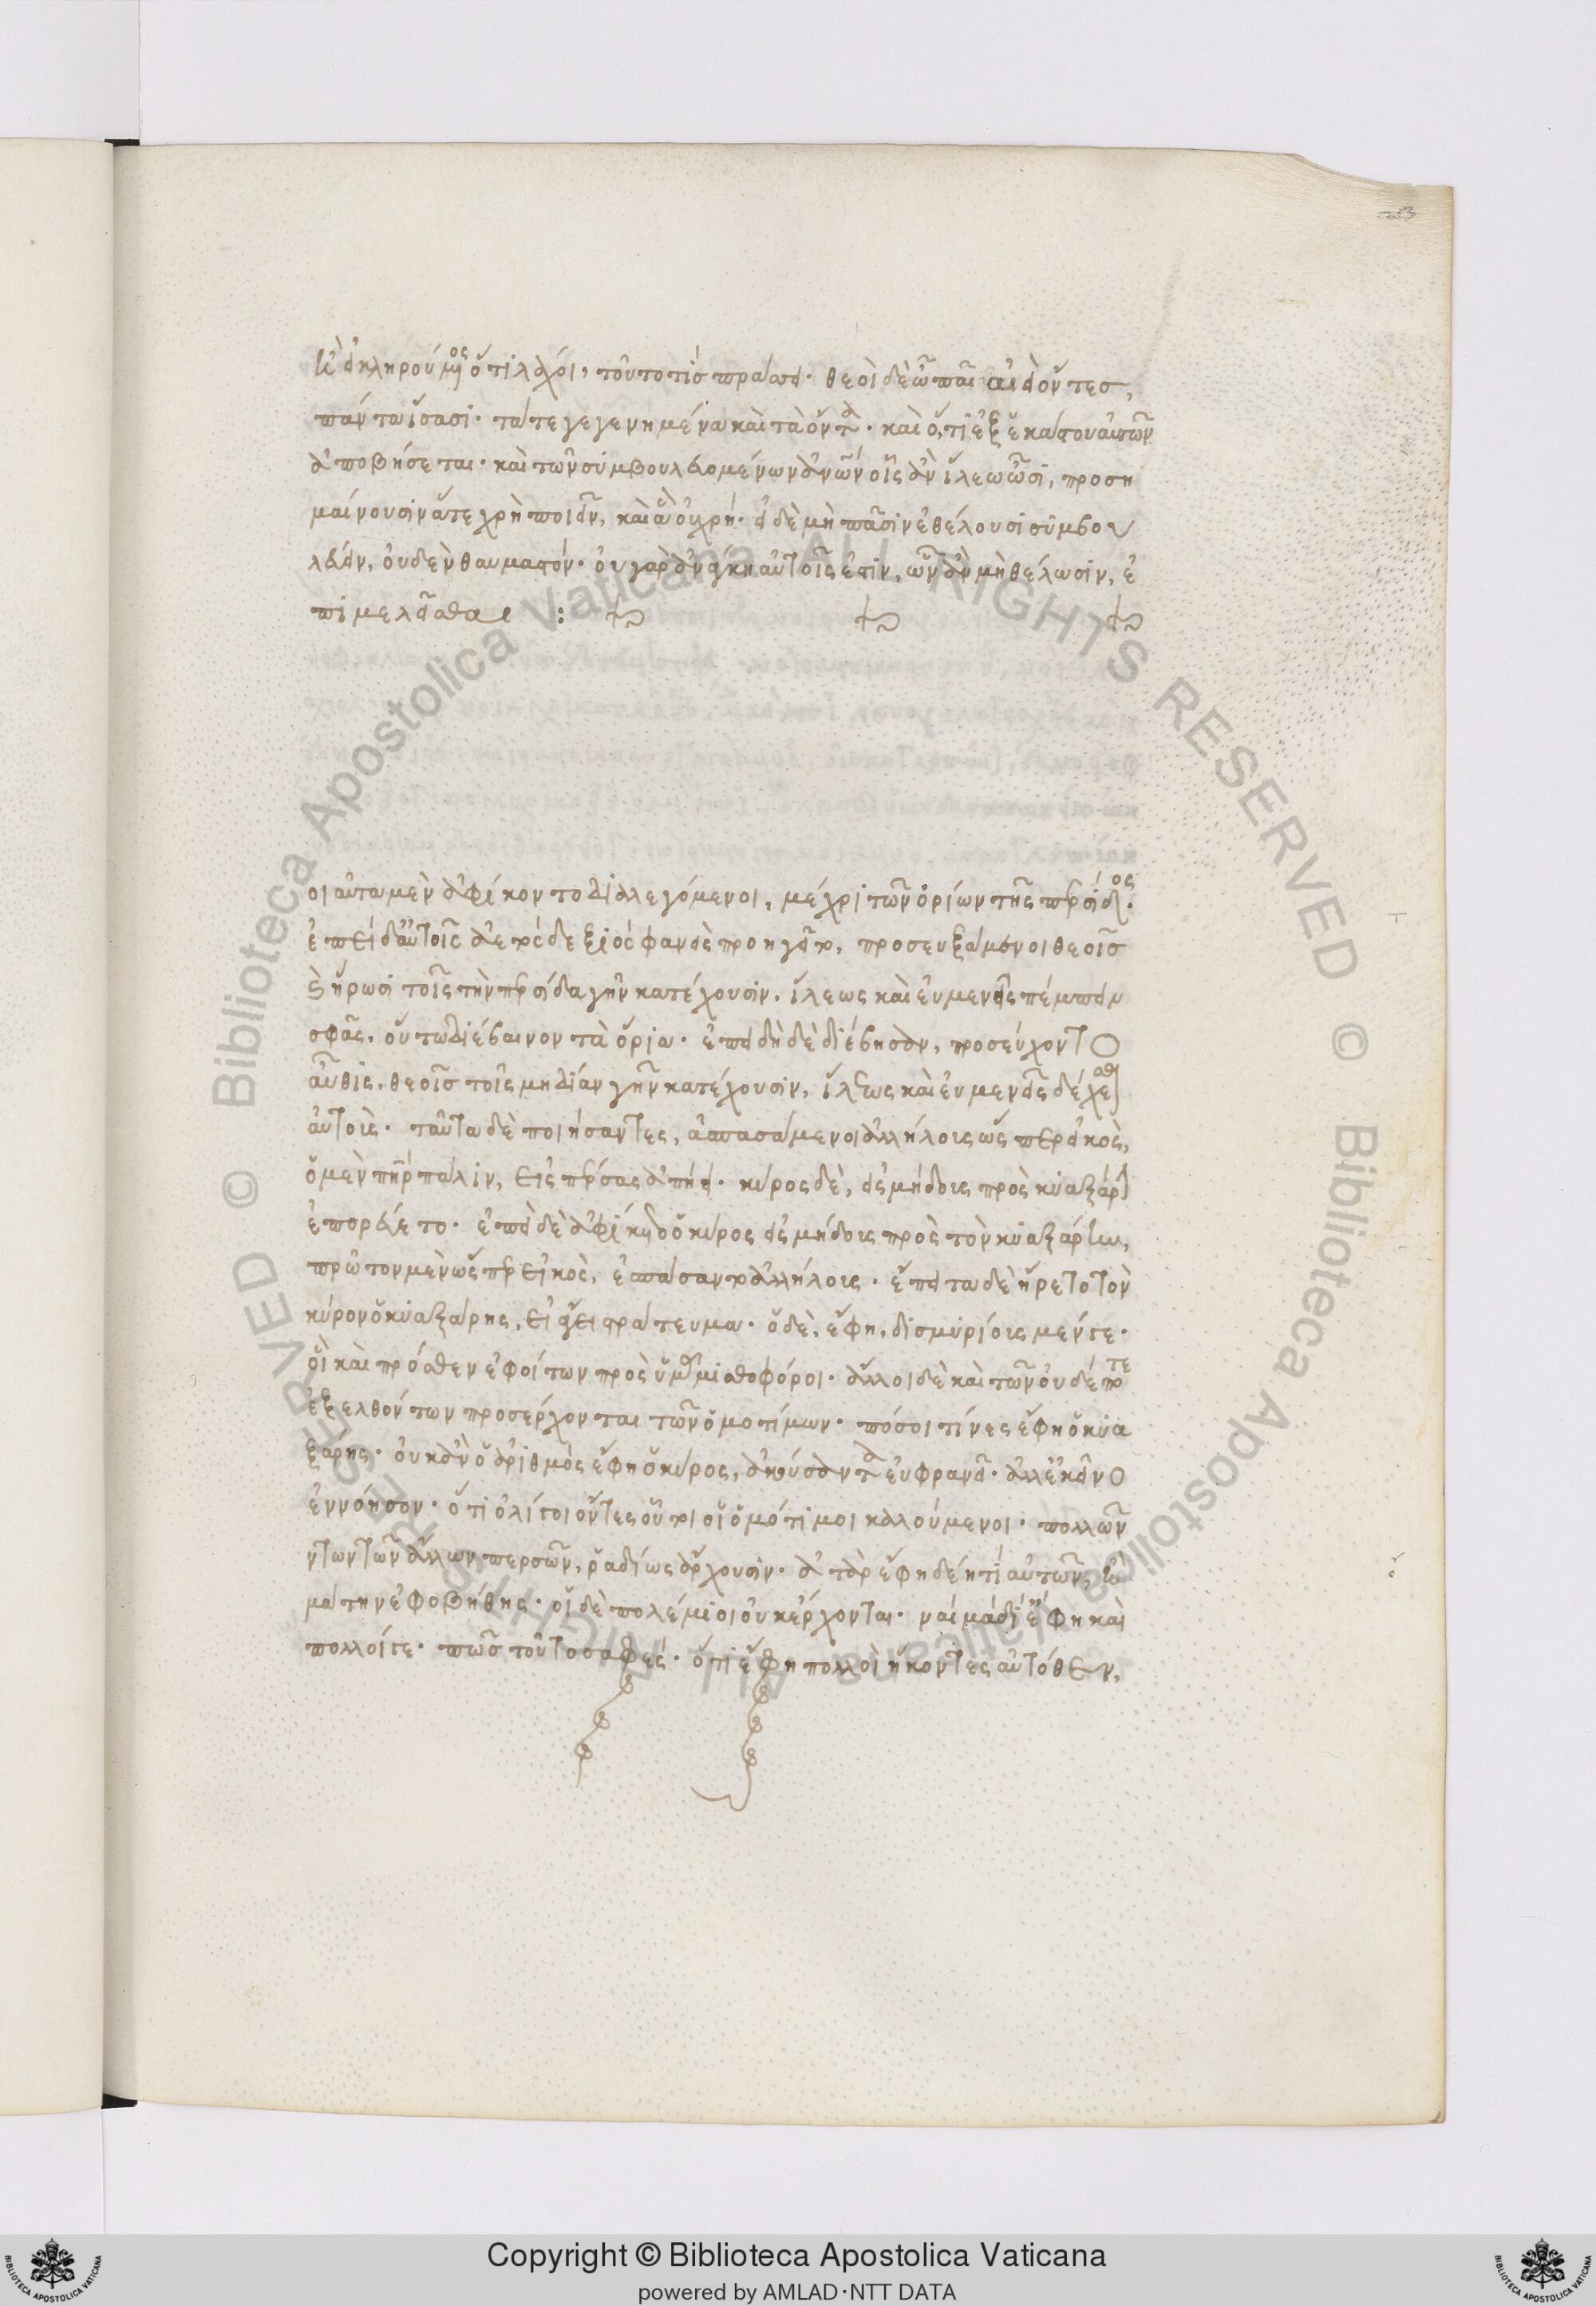 εἰ κληρούμενος ὅτι λάχοι, τοῦτό τις πράττει· θεοὶ δὲ ὦ παῖ αἰεὶ ὄντες,
πάντα ἴσασι· τά τε γεγενημένα καὶ τὰ ὄντα· καὶ ὅ,τι ἐξ ἑκάστου αὐτῶν
ἀποβήσεται· καὶ τῶν συμβουλευομένων ἀνων οἷς ἂν ἵλεω ὦσι, προση
μαίνουσιν ἅ τε χρὴ ποιεῖν, καὶ ἃ οὐ χρή· εἰ δὲ μὴ πᾶσιν ἐθέλουσι συμβου
λεύειν, οὐδὲν θαυμαστόν· οὐ γὰρ ἀνάγκη αὐτοῖς ἐστιν, ὧν ἂν μὴ θέλωσιν, ἐ
πιμελεῖσθαι :
οιαῦτα μὲν ἀφίκοντο διαλεγόμενοι, μέχρι τῶν ὁρίων τῆς περσίδος·
ἐπεὶ δ' αὐτοῖς ἀετὸς δεξιὸς φανεὶς προηγεῖτο, προσευξάμενοι θεοῖς
καὶ ἥρωσι τοῖς τὴν περσίδα γῆν κατέχουσιν, ἵλεως καὶ εὐμενεῖς πέμπειν
σφᾶς, οὕτω διέβαινον τὰ ὅρια· ἐπειδὴ δὲ διέβησαν, προσεύχοντο
αὖθις, θεοῖς τοῖς μηδίαν γῆν κατέχουσιν, ἵλεως καὶ εὐμενεῖς δέχεσθαι
αὐτούς· ταῦτα δὲ ποιήσαντες, ἀσπασάμενοι ἀλλήλοις ὥσπερ εἰκὸς,
ὁ μὲν πηρ πάλιν, εἰς πέρσας ἀπήει· κύρος δὲ, εἰς μήδους πρὸς κυαξάρην
ἐπορεύετο· ἐπεὶ δὲ ἀφίκετο ὁ κύρος εἰς μήδους πρὸς τὸν κυαξάρην,
πρῶτον μὲν ὥσπερ εἰκὸς, ἐσπάσαντο ἀλλήλοις· ἔπειτα δὲ ἤρετο τὸν
κύρον ὁ κυαξάρης, εἰ ἄγει στράτευμα· ὁ δὲ, ἔφη, δισμυρίους μέν γε·
οἳ καὶ πρόσθεν ἐφοίτων πρὸς ὑμᾶς μισθοφόροι· ἄλλοι δὲ καὶ τῶν οὐδέποτε
ἐξελθόντων προσέρχονται τῶν ὁμοτίμων· πόσοι τινες ἔφη ὁ κυα
ξάρης· οὐκ ἂν ὁ ἀριθμός ἔφη ὁ κύρος, ἀκούσαντα εὐφρανεῖ· ἀλλ' ἐκεῖνο
ἐννόησον· ὅτι ὀλίγοι ὄντες οὗτοι οἱ ὁμότιμοι καλούμενοι· πολλῶν
ντων τῶν ἄλλων περσῶν, ῥαδίως ἄρχουσιν· ἀτὰρ ἔφη δέῃ τί αὐτῶν, ἢ
μάτην ἐφοβήθης· οἱ δὲ πολέμιοι οὐκ ἔρχονται· ναὶ μὰ δί' ἔφη καὶ
πολλοί γε· πῶς τοῦτο σαφές· ὅτι ἔφη πολλοὶ ἥκοντες αὐτόθεν,